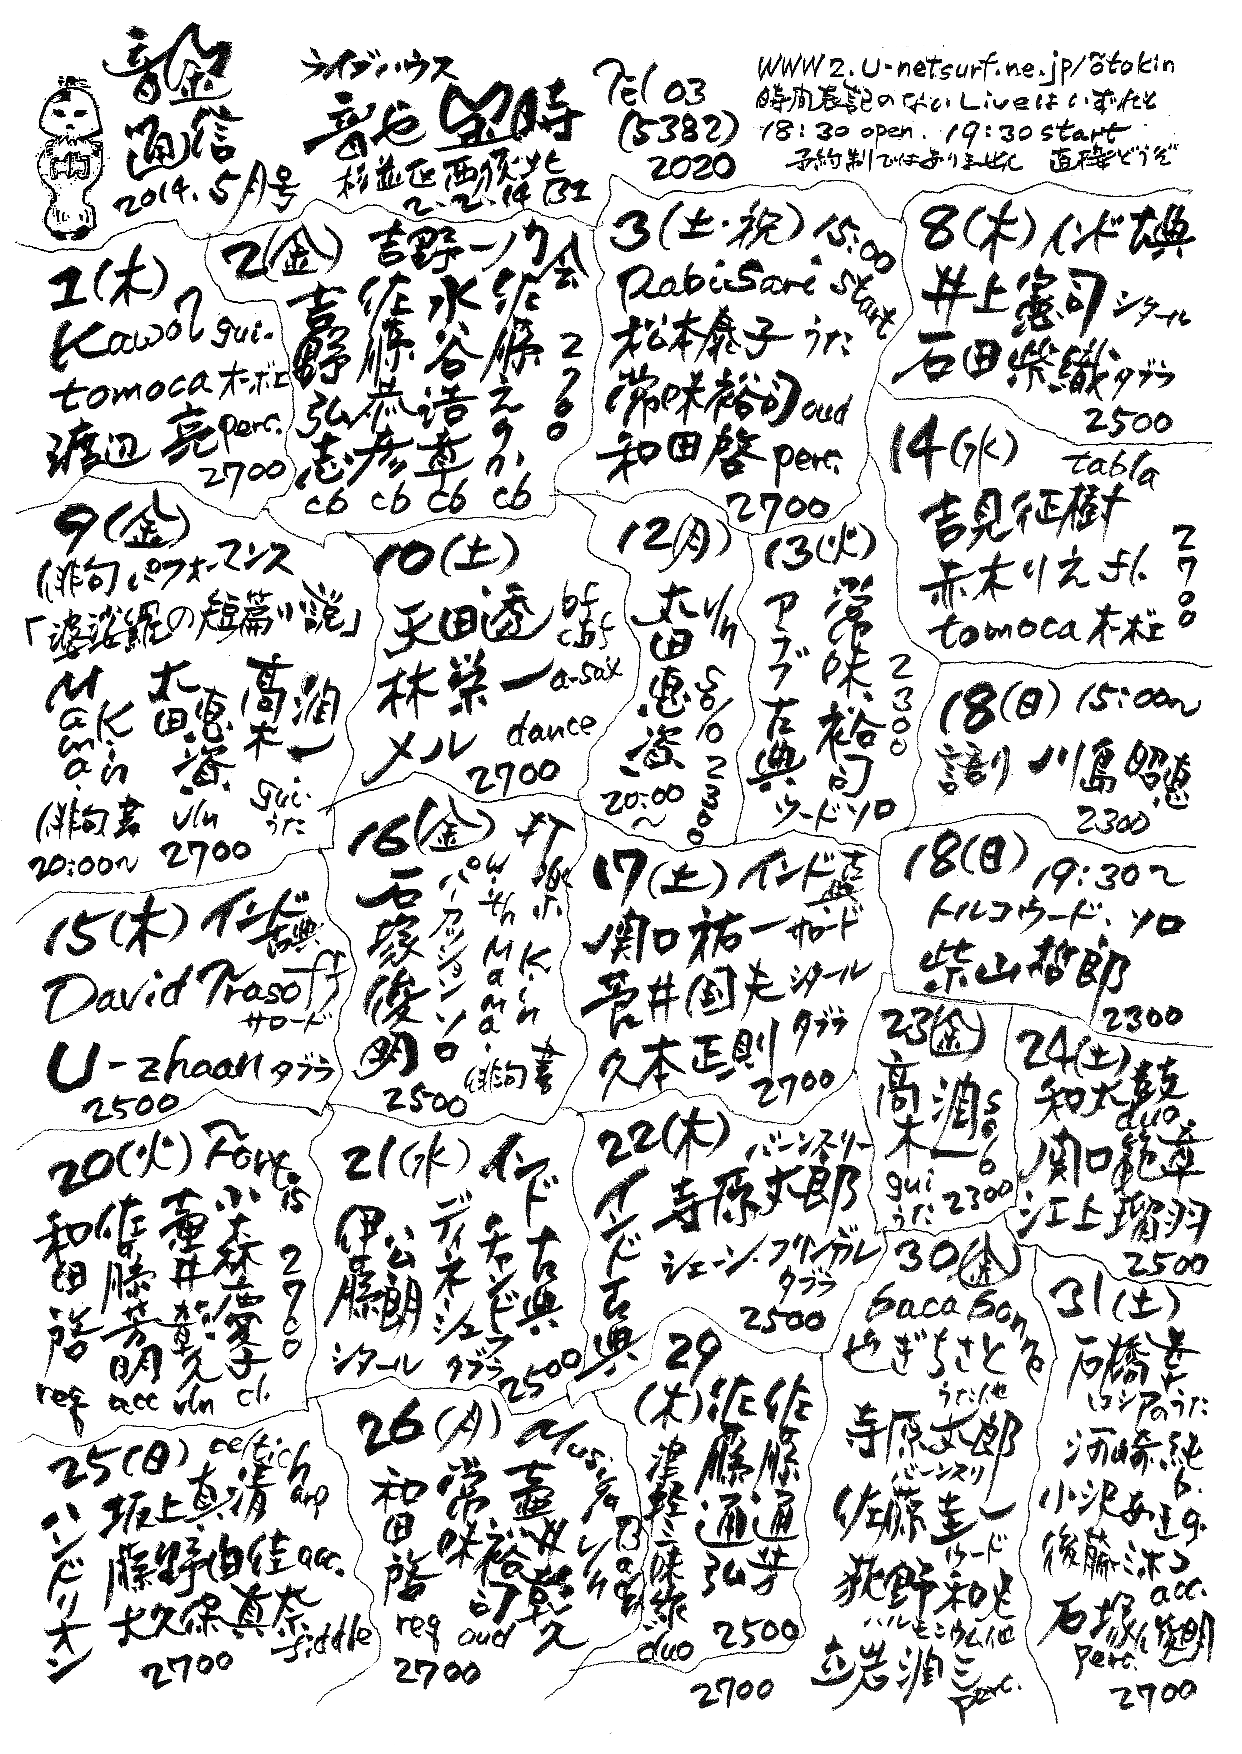 音金
通信
2014.5月号
ライブハウス
音や金時
杉並区西荻北
2-2-14 B1
Tel 03
(5382)
2020
WWW2.U-netsurf.ne.jp/~otokin
時間表記のないLiveはいずれも
18:30 open. 19:30 start
予約制ではありません 直接どうぞ
1(木)
Kawol gui.
tomoca ホーボエ
渡辺 亮 perc.
2700
2(金) 吉野一ノ力会
吉野弘志 cb
佐藤恭彦 cb
水谷浩章 cb
佐藤えりか cb
2700
3(土・祝) 15:00 start
RabiSari
松本泰子 うた
常味裕司 oud
和田啓 perc.
2700
8(木) インド古典
井上憲司 シタール
石田紫織 タブラ
2500
9(金)
俳句パフォーマンス
「婆娑羅の短篇小説」
Mama.Kin 俳句書
太田惠資 vln
高木潤一 gui. うた
20:00〜 2700
10(土)
天田透 bf cbf
林栄一 a-sax
メル dance
2700
12(月)
太田惠資 vln solo
20:00〜
2300
13(火)
常味裕司
アラブ古典
ウードソロ
2300
14(水) tabla
吉見征樹
赤木りえ fl.
tomoca ホーボエ
2700
18(日) 15:00〜
語り 川島昭恵
2300
15(木) インド古典
David Trasoff
サロード
U-zhaan タブラ
2500
16(金)
石塚俊明
パーカッションソロ
with Mama.Kin
俳句書
2500
17(土) インド古典
関口祐一 サロード
菅井団夫 シタール
久本正則 タブラ
2700
18(日) 19:30〜
トルコウード.ソロ
柴山哲郎
2300
20(火) Fortis
和田啓 req
佐藤芳明 acc
壷井彰久 vln
小森慶子 cl.
2700
21(水) インド古典
伊藤公朗 シタール
ディネシュ チャンドラ タブラ
2500
22(木) バーンスリー
インド古典
寺原太郎
シェーン.フリンガル タブラ
2500
23(金)
高木潤一 solo
gui うた
2300
24(土)
和太鼓 duo
関口範章
江上瑠羽
2500
25(日) celtich arp
ハンドリオン
坂上真清
藤野由佳 acc.
大久保真奈 fiddle
2700
26(月)
和田啓 req
常味裕司 oud
壷井彰久 vln
2700
29
(木)
津軽三味線 duo
佐藤通弘
佐藤通芳
2500
30(金)
bacabon
やぎちさと
うた他
寺原太郎
バーンスリ
佐藤圭一
ウード
荻野和夫
ハルモニウム他
立岩潤三
perc.
2700
31(土)
石橋幸
ロシアのうた
河崎純 b.
小沢あき g.
後藤ミホコ acc.
石塚俊明
perc.
2700